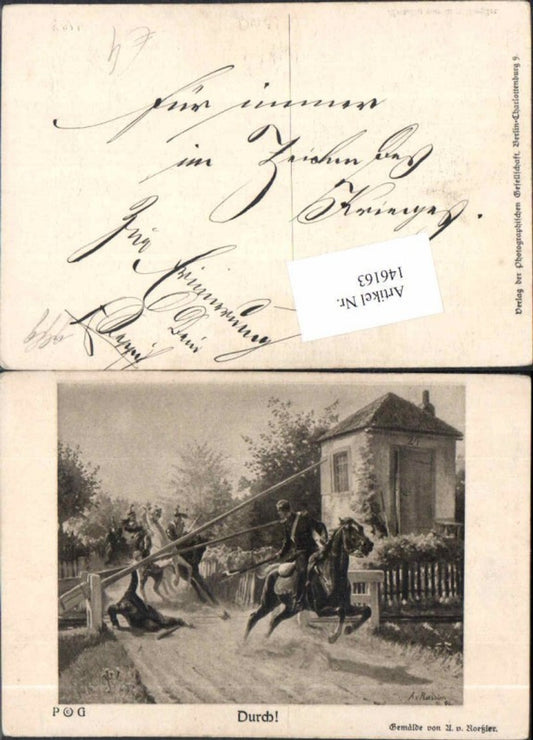 Für immer
im Zeichen des
Krieges.
Zur
Erinnerung
Dein
Verlag der Photographischen Gesellschaft, Berlin-Charlottenburg 9.
Artikel Nr.
146163
24
P G
Durch!
Gemälde von A. v. Roeßler.